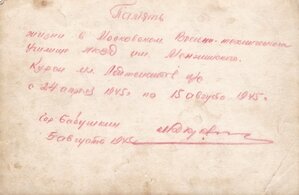 Память
жизни в Московском Военно-техническом
Училище НКВД им. Менжинского.
Курсы мл. Лейтенантов
с 24 апреля 1945г по 15 августа 1945г.
Бабушкин
5 августа 1945г.